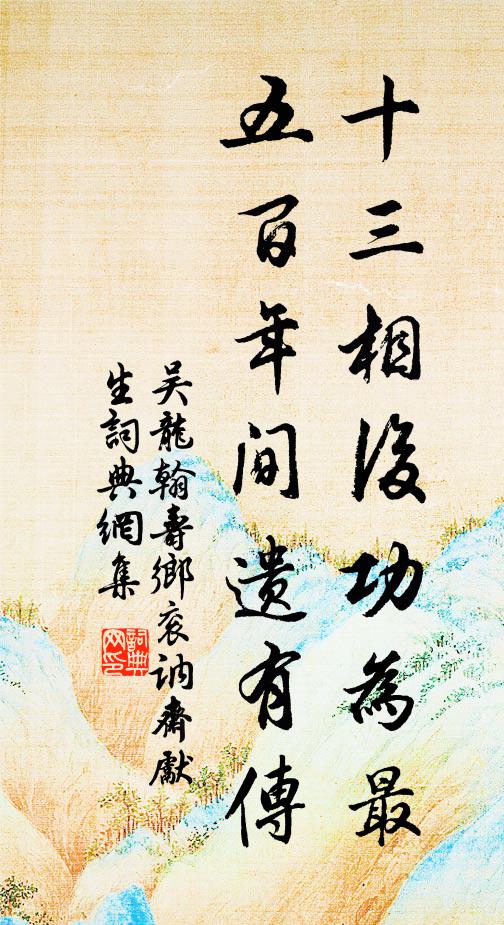 十三相後功為最
五百年間遺有傳
吴龍翰壽鄉衮訥齋獻
生詞典網集
詞典
网印